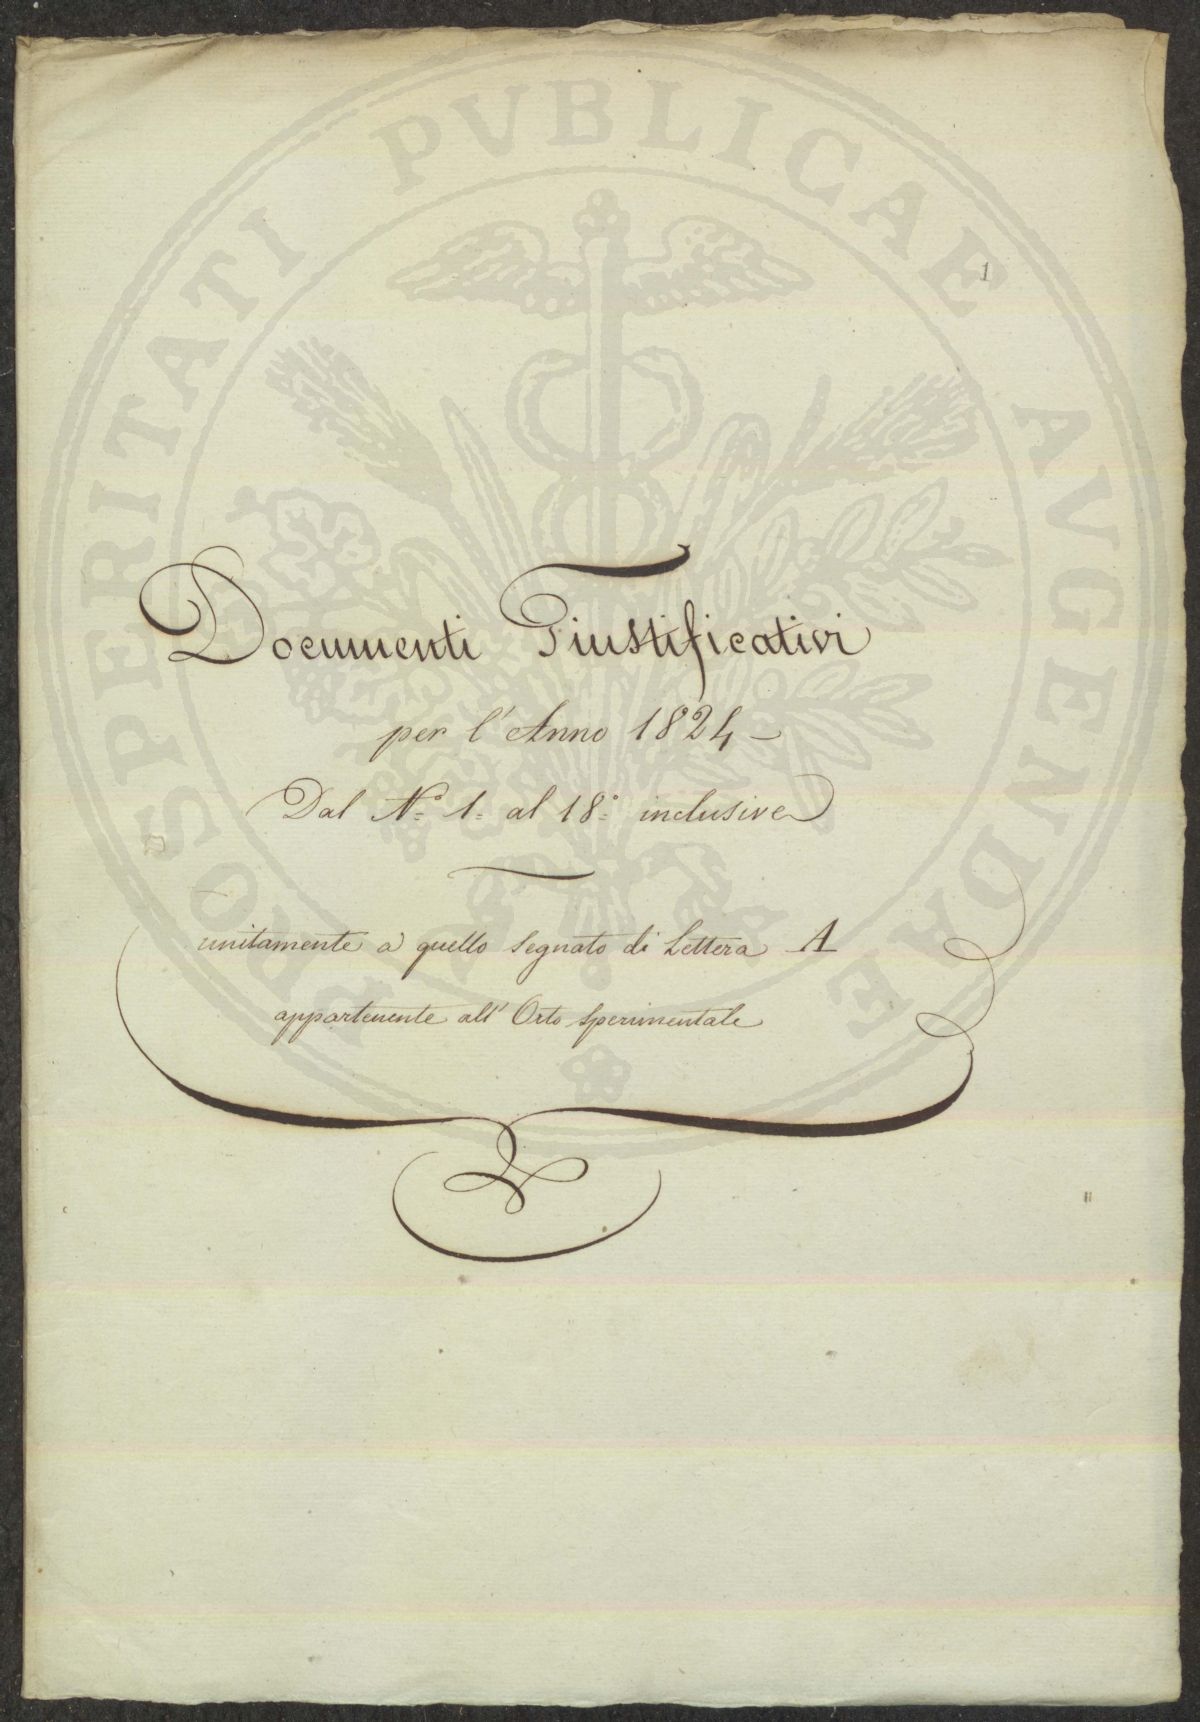 PROSPERITATI PVBLICAE AVGENDAE
1
Documenti Giustificativi
per l'Anno 1824 –
Dal N.º 1.º al 18.º inclusive
unitamente a quello segnato di Lettera A
appartenente all' Orto sperimentale